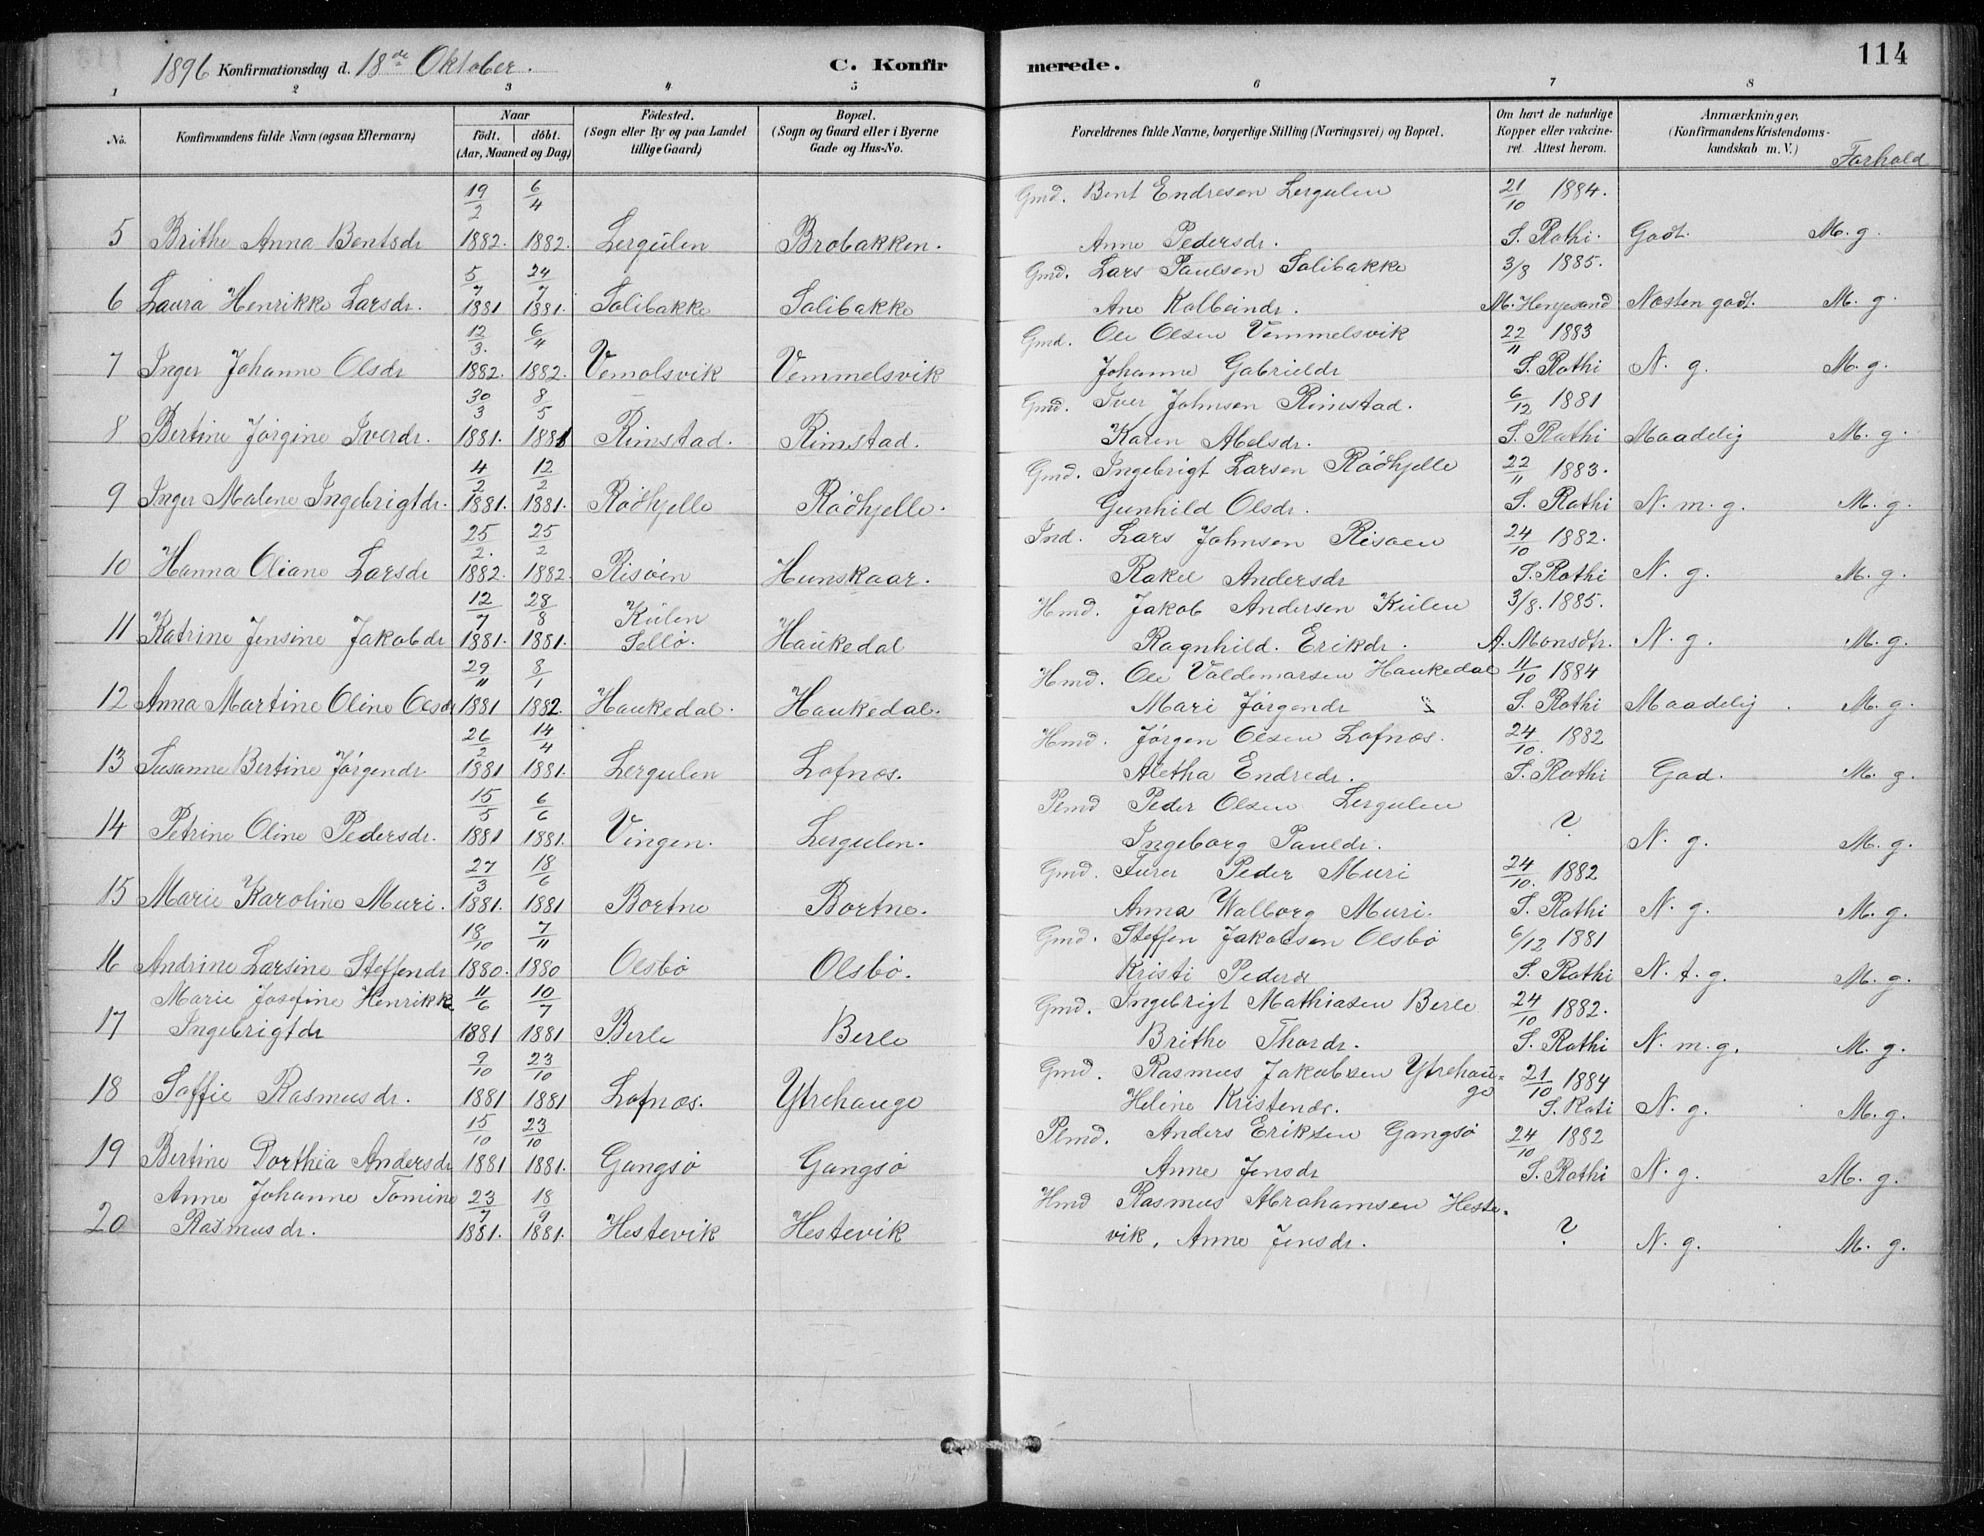 1896 Konfirmationsdag d. 18de Oktober. C. Konfirmerede. 114
1 2 3 4 5 6 7 8
No. Konfirmandens fulde Navn (ogsaa Efternavn) Naar født. døbt. (Aar, Maaned og Dag) Fødested. (Sogn eller By og paa Landet tillige Gaard) Bopæl. (Sogn og Gaard eller i Byerne Gade og Hus-No. Forældrenes fulde Navne, borgerlige Stilling (Næringsvei) og Bopæl. Om havt de naturlige Kopper eller vakcineret. Attest herom. Anmærkninger, (Konfirmandens Kristendomskundskab m. V.) Forhold
19/2 6/4 Gmd. Bent Endresen Lergulen 21/10 1884.
5 Brithe Anna Bentsdr 1882. 1882. Lergulen Brobakken. Anne Pedersdr. S. Rathi. Godt. M. g.
5/7 24/7 Gmd. Lars Paulsen Solibakke 3/8 1885.
6 Laura Henrikke Larsdr. 1881 1881. Solibakke Solibakke Ane Kolbeindr. M. Henjesand Næsten godt. M. g.
12/3. 6/4 Gmd. Ole Olsen Vemmelsvik 22/11 1883
7 Inger Johanne Olsdr 1882. 1882. Vemolsvik Vemmelsvik Johanne Gabrieldr S. Rathi N. g. M. g.
30/3 8/5 Gmd. Iver Johnsen Rimstad. 6/12 1881
8 Bertine Jørgine Iverdr. 1881. 1881 Rimstad. Rimstad. Karen Abelsdr. S. Rathi Maadelig M. g.
4/2 12/2 Gmd. Ingebrigt Larsen Rødhjelle 22/11 1883.
9 Inger Malene Ingebrigtdr. 1881. 1881. Rødhjelle Rødhjelle. Gunhild Olsdr. S. Rathi N. m. g. M. g.
25/2. 25/2 Ind. Lars Johnsen Risøen 24/10 1882.
10 Hanna Oliane Larsdr 1882. 1882. Risøen Hunskaar. Rakel Andersdr S. Rathi N. g. M. g.
12/7 28/8 Kulen Hmd. Jakob Andersen Kulen 3/8. 1885.
11 Katrine Jensine Jakobdr 1881. 1881. Sellø. Haukedal Ragnhild. Erikdr. A. Monsdtr. N. g. M. g.
29/11 8/1 Hmd. Ole Valdemarsen Haukedal 11/10 1884
12 Anna Martine Oline Olsdr 1881 1882. Haukedal. Haukedal. Mari Jørgendr " S. Rathi Maadelig. M. g.
26/2 14/4 Hmd. Jørgen Olsen Lofnæs. 24/10. 1882
13 Susanne Bertine Jørgendr 1881 1881. Lergulen Lofnæs. Aletha Endredr. S. Rathi God. M. g.
15/5 6/6 Plmd Peder Olsen Lergulen
14 Petrine Oline Pedersdr. 1881 1881. Vingen. Lergulen. Ingeborg Pauldr. ? N. g. M. g.
27/3 18/6 Gmd. Furer Peder Muri 24/10. 1882
15 Marie Karoline Muri. 1881. 1881 Bortne Bortne. Anna Walborg Muri. S. Rathi N. g. M. g.
18/10 7/11 Gmd. Steffen Jakobsen Olsbø 6/12 1881
16 Andrine Larsine Steffendr 1880. 1880 Olsbø Olsbø. Kristi Pederdr S. Rathi N. t. g. M. g.
Marie Josefine Henrikke 11/6 10/7 Gmd. Ingebrigt Mathiasen Berle 24/10 1882.
17 Ingebrigtdr 1881 1881 Berle Berle Brithe Thordr. S. Rathi N. m. g. M. g.
9/10 23/10 Gmd. Rasmus Jakobsen Ytrehau- 21/10 1884
18 Soffie Rasmusdr. 1881 1881 Lofnæs. Ytrehauge Heline Kristendr. ge S. Rati N. g. M. g.
15/10 23/10 Plmd. Anders Eriksen Gangsø 24/10 1882
19 Bertine Dorthea Andersdr 1881 1881. Gangsø Gangsø Anne Jensdr S. Rathi N. g. M. g.
Anne Johanne Tomine 23/7 18/9 Hmd Rasmus Abrahamsen Heste-
20 Rasmusdr. 1881. 1881. Hestevik Hestevik vik, Anne Jensdr. ? N. g. M. g.